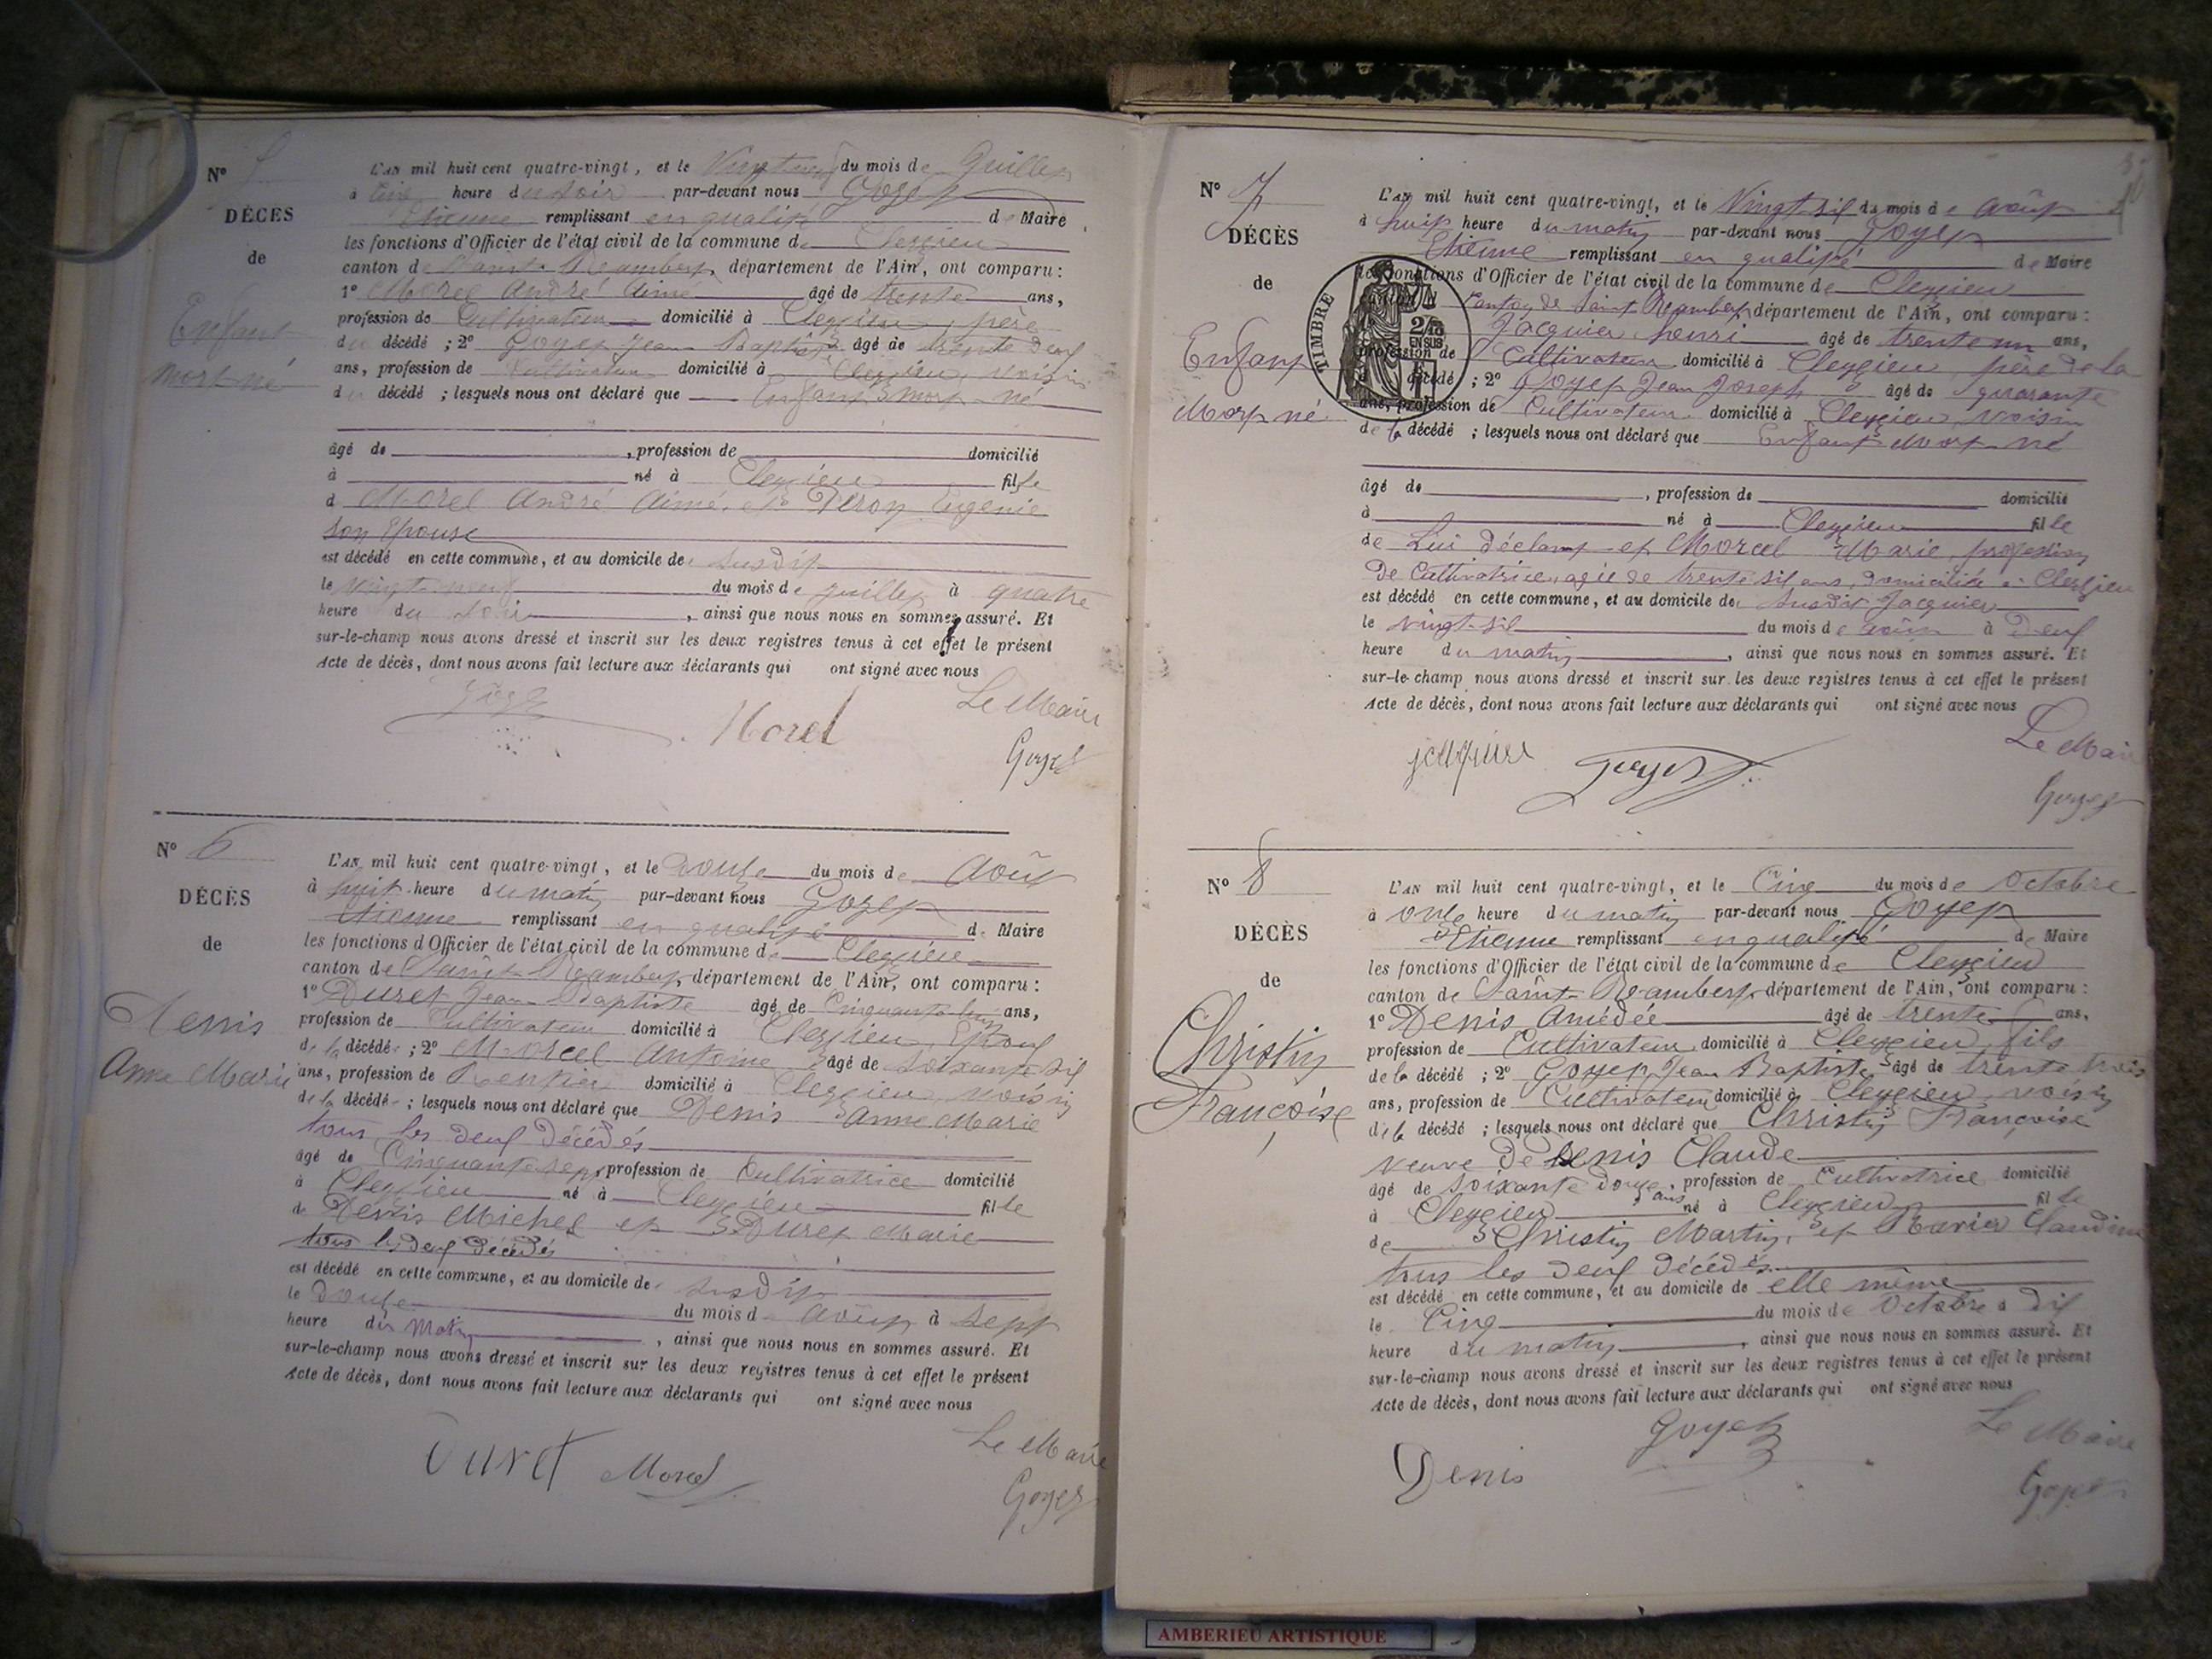 N°
DÉCÈS
de
Enfant
mort né
L'AN mil huit cent quatre-vingt, et le Vingt neuf du mois de Juillet
à heure du soir par-devant nous Goyet
Etienne remplissant en qualité de Maire
les fonctions d'Officier de l'état civil de la commune de Cleyzieu
canton de Saint-Rambert, département de l'Ain, ont comparu :
1° Morel André Aimé âgé de trente ans,
profession de Cultivateur domicilié à Cleyzieu, père
du décédé ; 2° Goyet Jean Baptiste âgé de trente deux
ans, profession de Cultivateur domicilié à Cleyzieu, voisin
du décédé ; lesquels nous ont déclaré que Enfant mort né
âgé de , profession de domicilié
à né à Cleyzieu fille
d Morel André Aimé, et de Peroz Eugenie
son Epouse
est décédé en cette commune, et au domicile de susdit
le vingt-neuf du mois de juillet à quatre
heure du soir , ainsi que nous nous en sommes assuré. Et
sur-le-champ nous avons dressé et inscrit sur les deux registres tenus à cet effet le présent
Acte de décès, dont nous avons fait lecture aux déclarants qui ont signé avec nous
Le Maire
Morel
Goyet
N° 6
DÉCÈS
de
Denis
Anne Marie
L'AN mil huit cent quatre-vingt, et le douze du mois de Août
à huit heure du matin par-devant nous Goyet
Etienne remplissant en qualité de Maire
les fonctions d'Officier de l'état civil de la commune de Cleyzieu
canton de Saint-Rambert, département de l'Ain, ont comparu :
1° Duret Jean Baptiste âgé de Cinquante ans,
profession de Cultivateur domicilié à Cleyzieu, Epoux
de la décédée ; 2° Morcel Antoine âgé de soixante six
ans, profession de Rentier domicilié à Cleyzieu, voisin
de la décédée ; lesquels nous ont déclaré que Denis Anne Marie
tous les deux décédés
âgé de Cinquante sept, profession de Cultivatrice domicilié
à Cleyzieu né à Cleyzieu fille
de Denis Michel et Duret Marie
tous les deux décédés
est décédé en cette commune, et au domicile de susdit
le douze du mois d août à sept
heure du matin , ainsi que nous nous en sommes assuré. Et
sur-le-champ nous avons dressé et inscrit sur les deux registres tenus à cet effet le présent
Acte de décès, dont nous avons fait lecture aux déclarants qui ont signé avec nous
Le Maire
Duret Morcel
Goyet
N° 7
DÉCÈS
de
Enfant
Mort né
L'AN mil huit cent quatre-vingt, et le Vingt-six du mois de Août
à huit heure du matin par-devant nous Goyet
Etienne remplissant en qualité de Maire
les fonctions d'Officier de l'état civil de la commune de Cleyzieu
canton de Saint Rambert, département de l'Ain, ont comparu :
Jacquier henri âgé de trente un ans,
profession de Cultivateur domicilié à Cleyzieu, père de la
décédé ; 2° Goyet Jean Joseph âgé de quarante
ans, profession de Cultivateur domicilié à Cleyzieu, voisin
de la décédé ; lesquels nous ont déclaré que Enfant Mort né
TIMBRE
2/10
EN SUS
âgé de , profession de domicilié
à né à Cleyzieu fille
de Lui déclarant et Morcel Marie, profession
De Cultivatrice, agée de trente six ans, domiciliée à Cleyzieu
est décédé en cette commune, et au domicile de susdit Jacquier
le vingt-six du mois de août à deux
heure du matin , ainsi que nous nous en sommes assuré. Et
sur-le-champ nous avons dressé et inscrit sur les deux registres tenus à cet effet le présent
Acte de décès, dont nous avons fait lecture aux déclarants qui ont signé avec nous
Le Maire
Goyet
Goyet
N° 8
DÉCÈS
de
Christin
Françoise
L'AN mil huit cent quatre-vingt, et le Cinq du mois de Octobre
à onze heure du matin par-devant nous Goyet
Etienne remplissant en qualité de Maire
les fonctions d'Officier de l'état civil de la commune de Cleyzieu
canton de Saint-Rambert, département de l'Ain, ont comparu :
1° Denis Amédée âgé de trente ans,
profession de Cultivateur domicilié à Cleyzieu, fils
de la décédé ; 2° Goyet Jean Baptiste âgé de trente trois
ans, profession de Cultivateur domicilié à Cleyzieu, voisin
de la décédé ; lesquels nous ont déclaré que Christin Françoise
veuve De Denis Claude
âgé de soixante douze ans, profession de Cultivatrice domicilié
à Cleyzieu né à Cleyzieu fille
de Christin Martin, et Ravier Claudine
tous les deux décédés
est décédé en cette commune, et au domicile de elle même
le Cinq du mois de Octobre à dix
heure du matin , ainsi que nous nous en sommes assuré. Et
sur-le-champ nous avons dressé et inscrit sur les deux registres tenus à cet effet le présent
Acte de décès, dont nous avons fait lecture aux déclarants qui ont signé avec nous
Goyet Le Maire
Denis
Goyet
AMBERIEU ARTISTIQUE